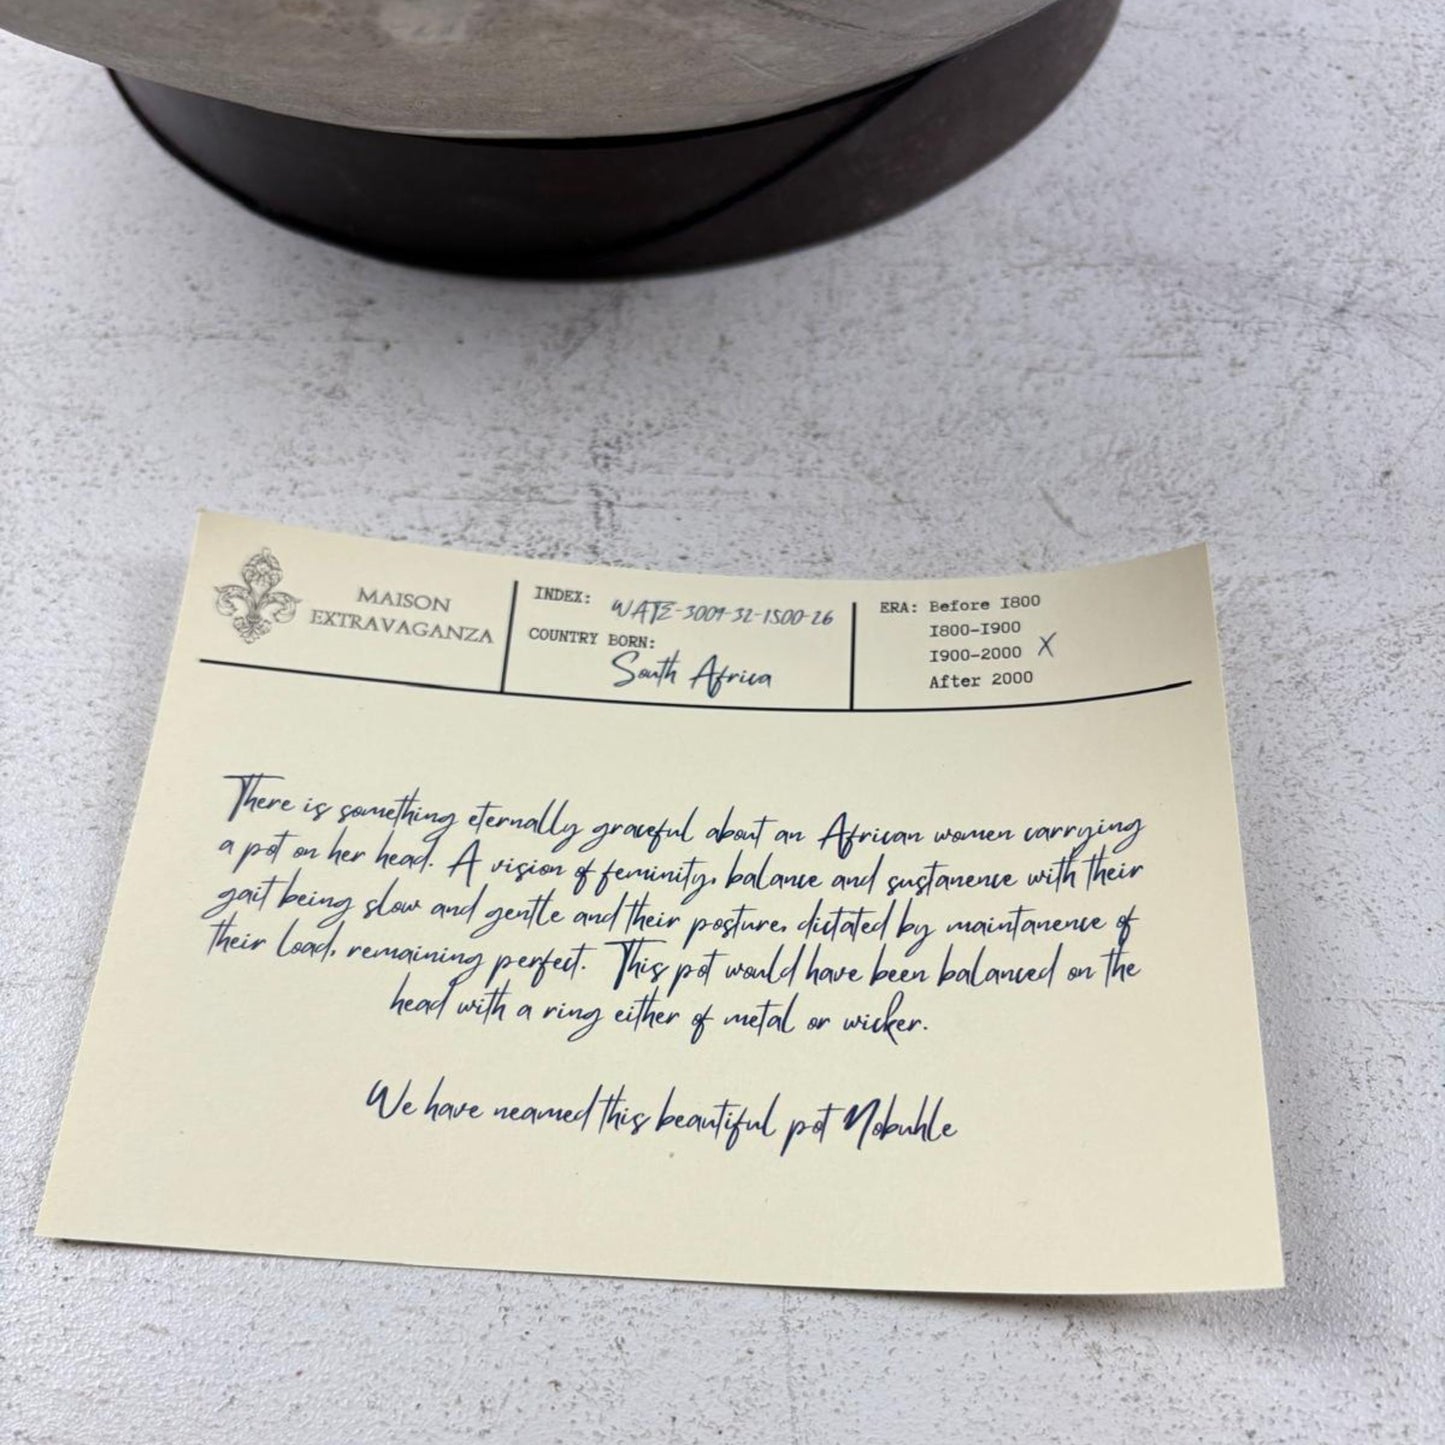 MAISON
EXTRAVAGANZA
INDEX: WATE-3009-32-1500-26
COUNTRY BORN:
South Africa
ERA: Before 1800
1800-1900
1900-2000 X
After 2000
There is something eternally graceful about an African women carrying
a pot on her head. A vision of feminity, balance and sustanence with their
gait being slow and gentle and their posture, dictated by maintanence of
their load, remaining perfect. This pot would have been balanced on the
head with a ring either of metal or wicker.
We have neamed this beautiful pot Nobuhle